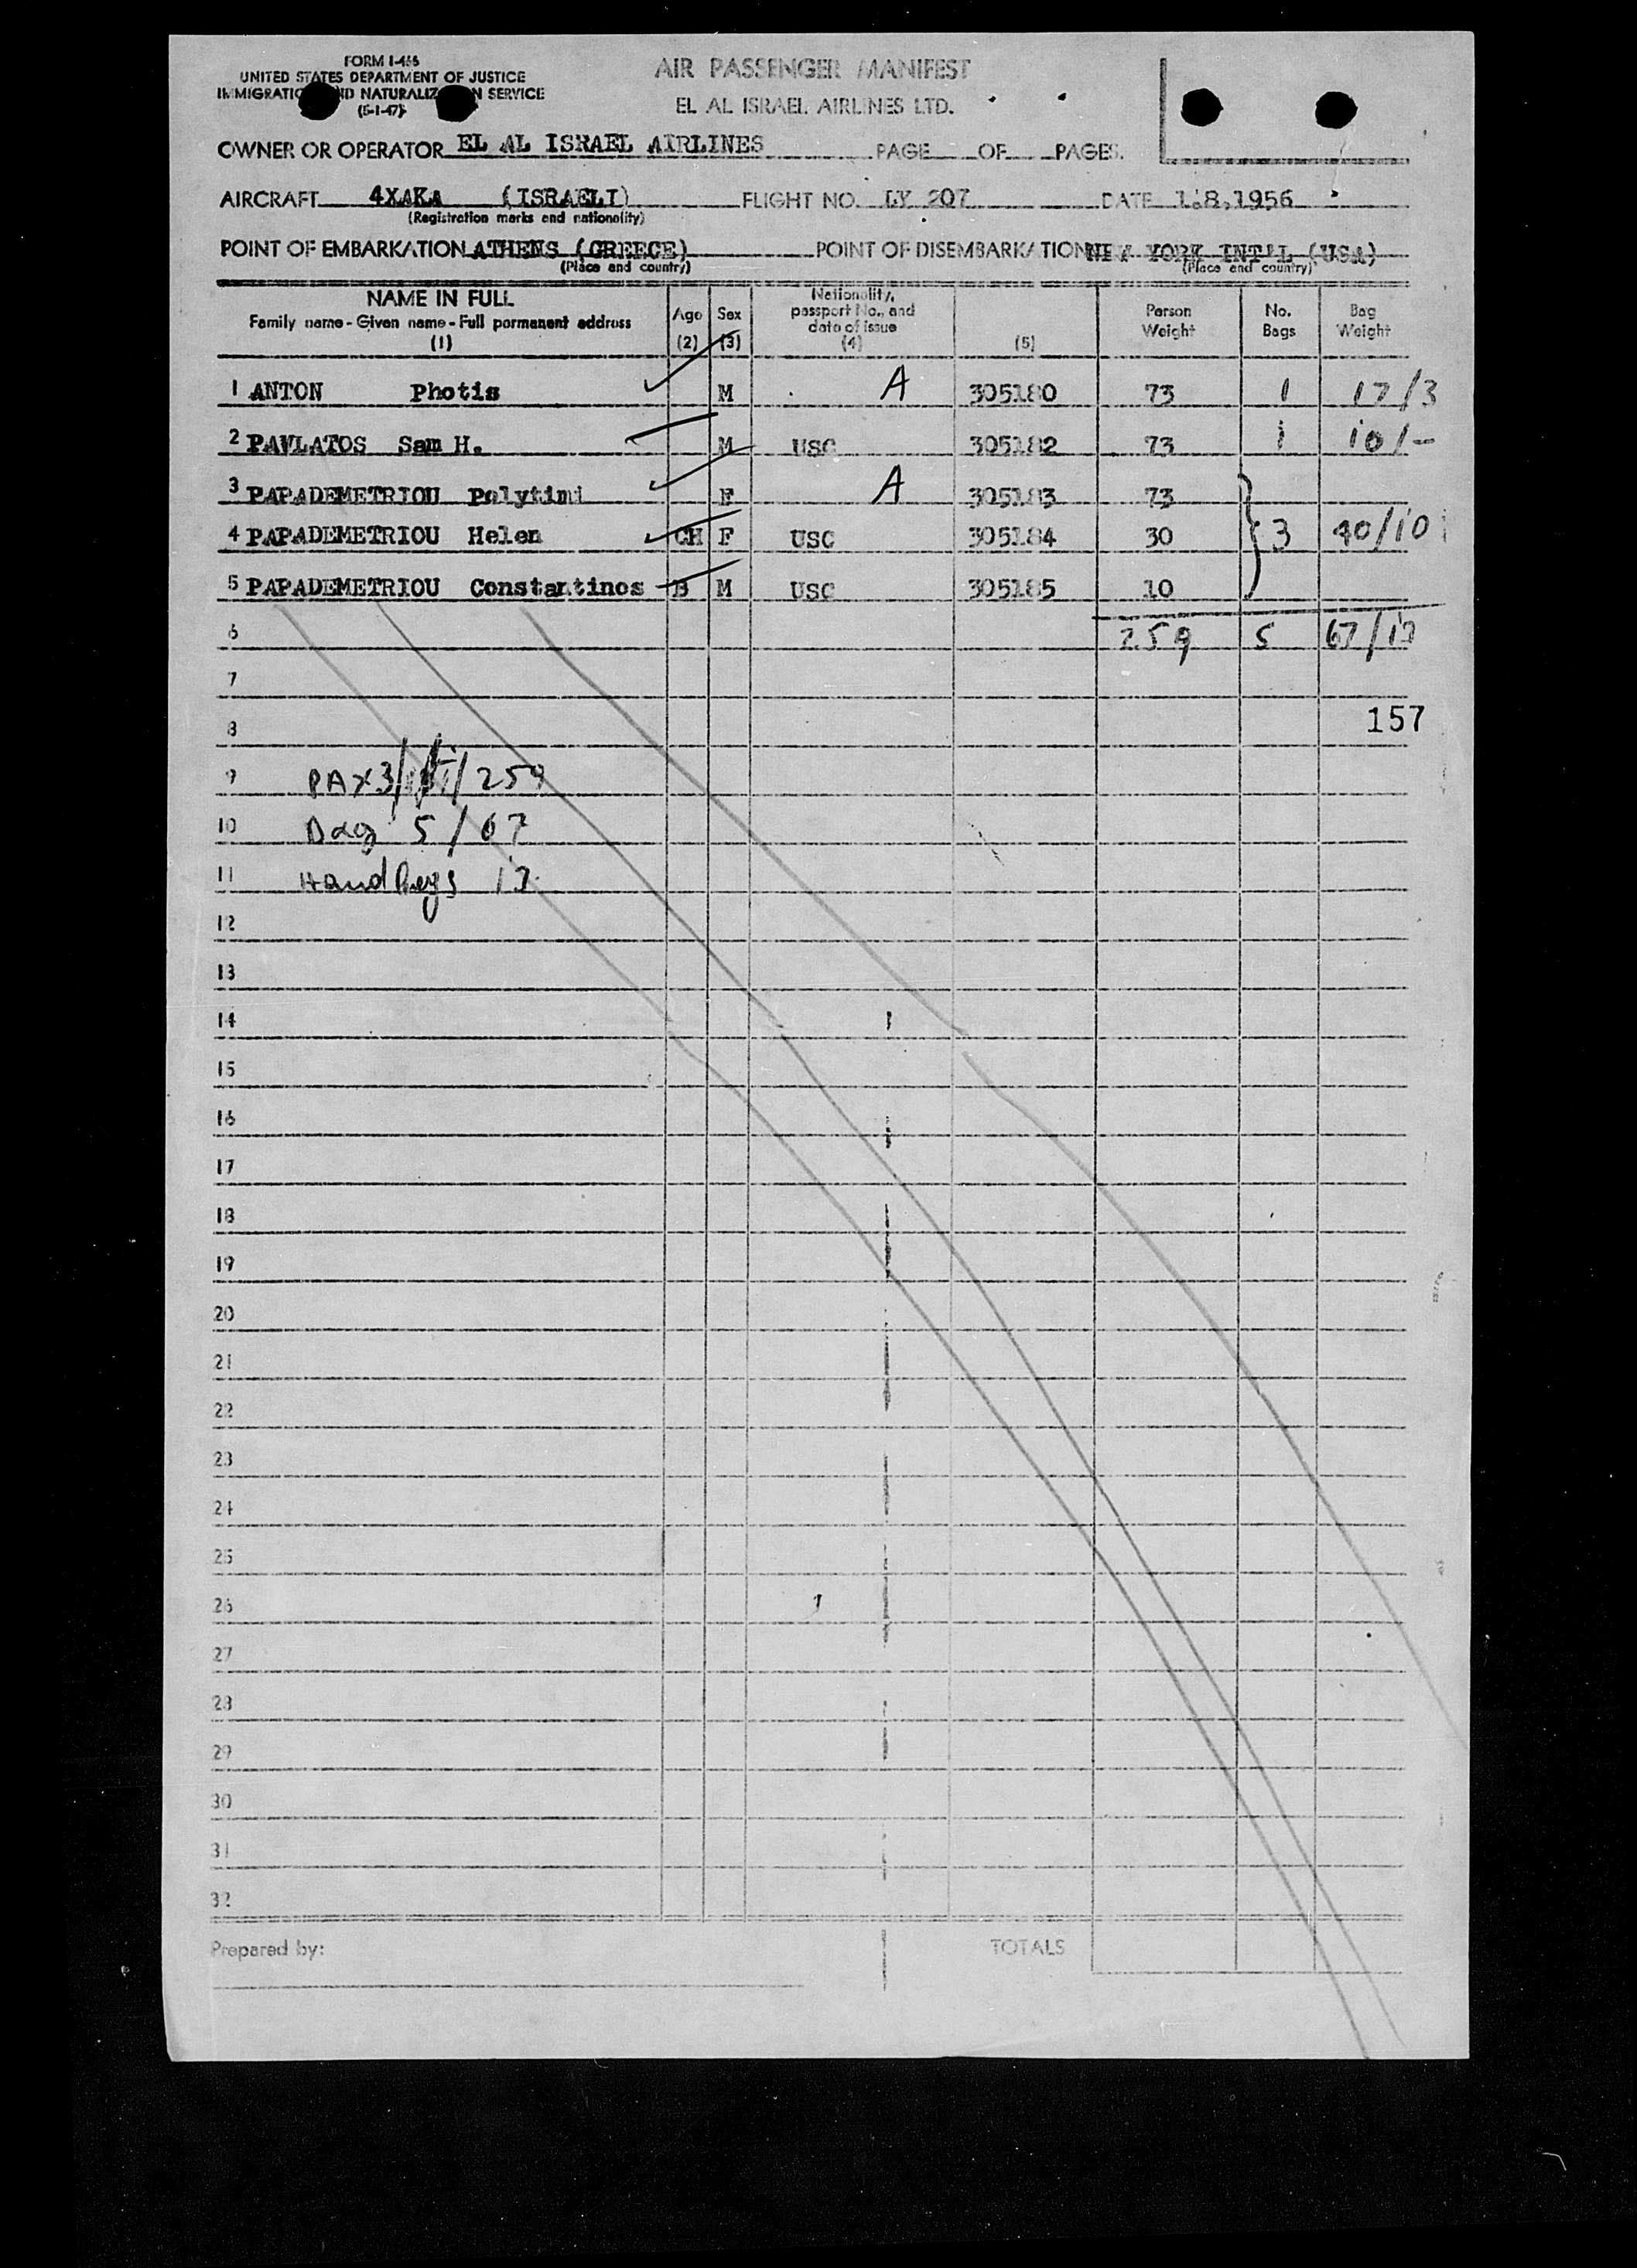 FORM I-466
UNITED STATES DEPARTMENT OF JUSTICE
IMMIGRATION AND NATURALIZATION SERVICE
(5-1-47)
AIR PASSENGER MANIFEST
EL AL ISRAEL AIRLINES LTD.
OWNER OR OPERATOR EL AL ISRAEL AIRLINES PAGE OF PAGES.
AIRCRAFT 4XAKA (ISRAELI) FLIGHT NO. LY 207 DATE 1.8.1956
(Registration marks and nationality)
POINT OF EMBARKATION ATHENS (GREECE) POINT OF DISEMBARKATION NEW YORK INT'L (USA)
(Place and country) (Place and country)
NAME IN FULL
Family name - Given name - Full permanent address
(1)
Age
(2)
Sex
(3)
Nationality,
passport No., and
date of issue
(4)
(5)
Person
Weight
No.
Bags
Bag
Weight
1 ANTON Photis M A 305180 73 1 17/3
2 PAVLATOS Sam H. M USC 305182 73 1 10/-
3 PAPADEMETRIOU Polytimi F A 305183 73
4 PAPADEMETRIOU Helen CH F USC 305184 30 3 40/10
5 PAPADEMETRIOU Constantinos B M USC 305185 10
6 259 5 67/13
7
8 157
9 PAX 3/ 259
10 Bag 5/67
11 Handbags 13
12
13
14
15
16
17
18
19
20
21
22
23
24
25
26
27
28
29
30
31
32
Prepared by: TOTALS